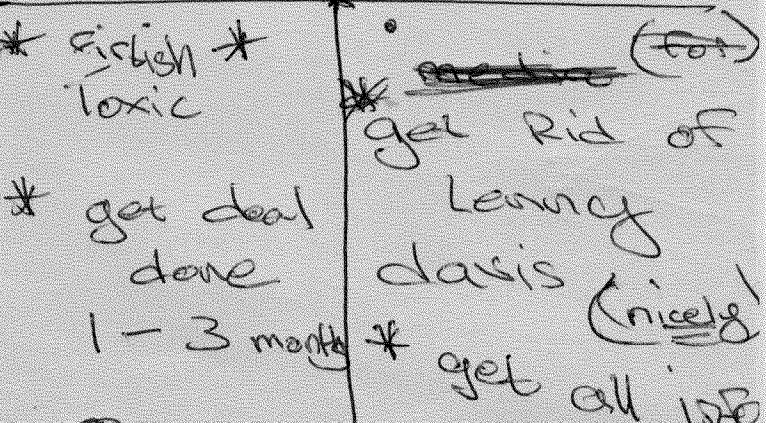 * Firlish *
Toxic
* get deal
done
1 - 3 month
(for)
* get Rid of
Lenny
davis
(nicely)
* get all info